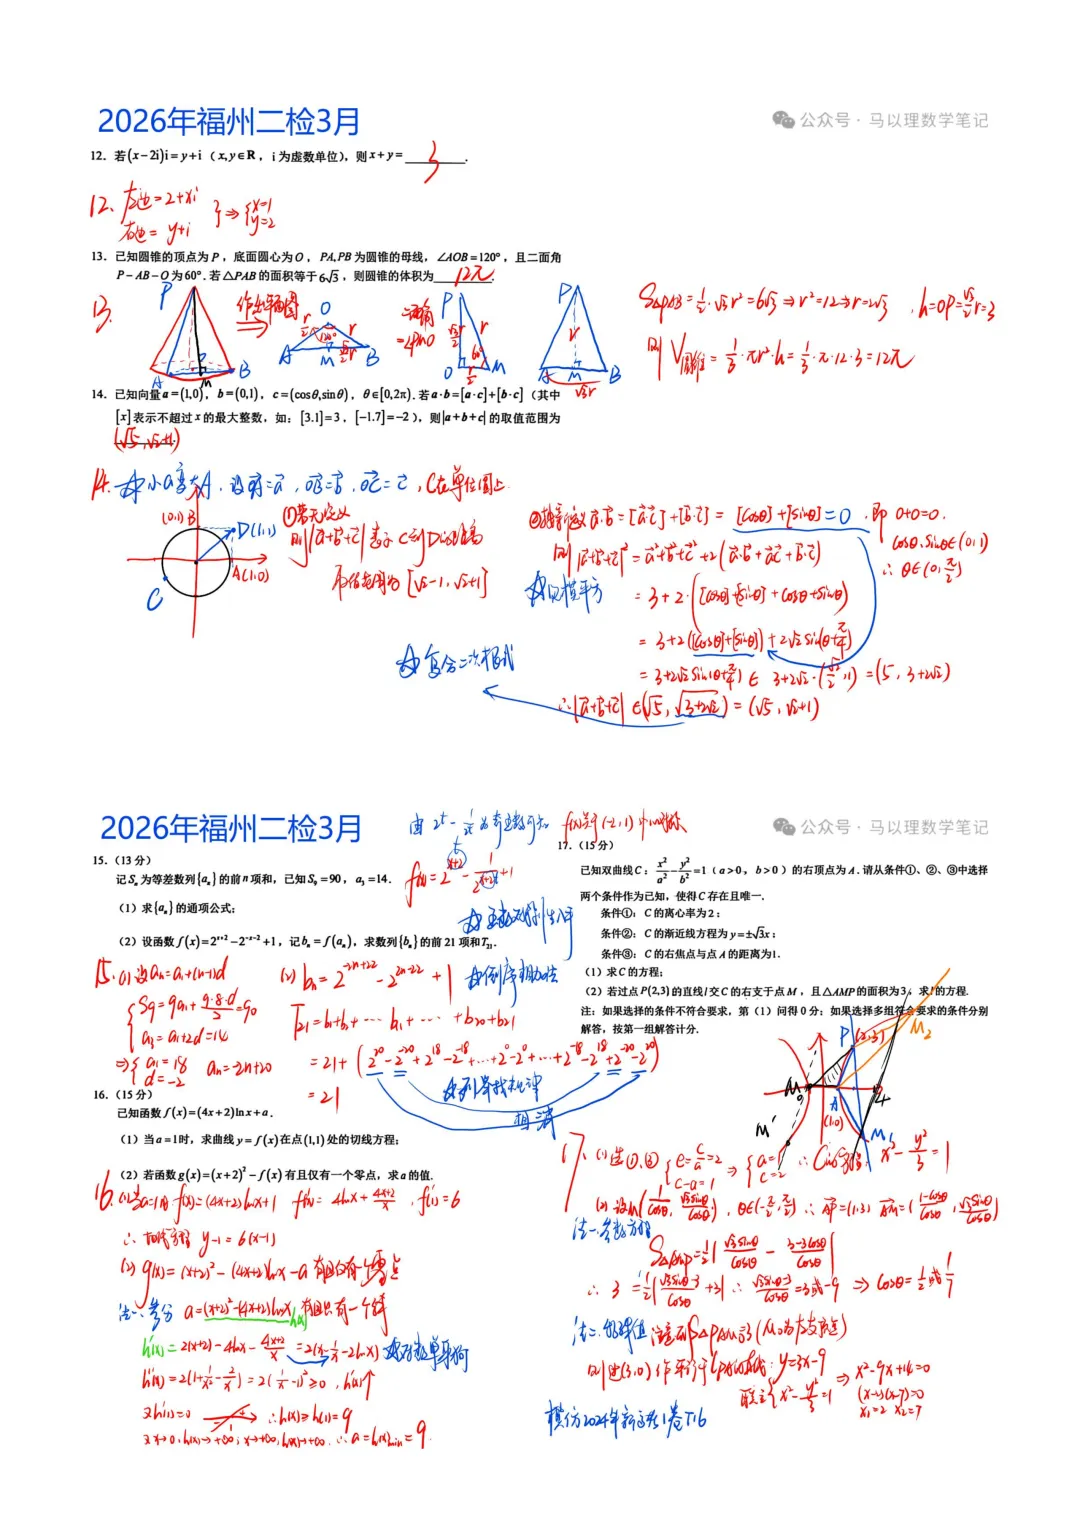 2026年福州二检3月
公众号 · 马以理数学笔记
12. 若(x−2i)i=y+i（x,y∈R，i为虚数单位），则x+y= 3 .
12、左边=2+xi
右边= y+i } ⇒ {x=1 y=2
13. 已知圆锥的顶点为P，底面圆心为O，PA,PB为圆锥的母线，∠AOB=120°，且二面角
P−AB−O为60°.若△PAB的面积等于6√3，则圆锥的体积为 12π .
13、
作出平面图
S△PAB=1/2·√3r²=6√3⇒r²=12⇒r=2√3，h=OP=√3/2 r=3
则V圆锥=1/3·πr²·h=1/3·π·12·3=12π
14. 已知向量a=(1,0)，b=(0,1)，c=(cosθ,sinθ)，θ∈[0,2π).若a·b=[a·c]+[b·c]（其中
[x]表示不超过x的最大整数，如：[3.1]=3，[−1.7]=−2），则|a+b+c|的取值范围为
(√5,√2+1).
14. 设OA=a，OB=b，OC=c，C在单位圆上
(0,1) B D(1,1)
A(1,0)
C
①若无定义
则|a+b+c|表示C到D的距离
取值范围为[√2−1,√2+1]
a·b=[a·c]+[b·c]=[cosθ]+[sinθ]=0，即0+0=0.
cosθ,sinθ∈(0,1)
∴θ∈(0,π/2)
则|a+b+c|²=a²+b²+c²+2(a·b+a·c+b·c)
☆见模平方
=3+2·([cosθ]+[sinθ]+cosθ+sinθ)
=3+2([cosθ]+[sinθ])+2√2sin(θ+π/4)
=3+2√2sin(θ+π/4)∈3+2√2·(√2/2,1)=(5,3+2√2)
☆复合二次根式
∴|a+b+c|∈(√5,√(3+2√2))=(√5,√2+1)
2026年福州二检3月
公众号 · 马以理数学笔记
15.（13分）
记Sₙ为等差数列{aₙ}的前n项和，已知S₉=90，a₃=14.
（1）求{aₙ}的通项公式；
（2）设函数f(x)=2^(x+2)−2^(−x−2)+1，记bₙ=f(aₙ)，求数列{bₙ}的前21项和T₂₁.
15.(1)设aₙ=a₁+(n−1)d
{S₉=9a₁+9·8·d/2=90
a₃=a₁+2d=14
⇒{a₁=18 d=−2 aₙ=−2n+20
(2) bₙ=2^(−2n+22)−2^(2n−22)+1
☆倒序相加法
T₂₁=b₁+b₂+⋯+b₂₀+b₂₁
=21+(2^20−2^−20+2^18−2^−18+⋯+2^0−2^0+⋯+2^−18−2^18+2^−20−2^20)
=21
☆列举找规律
相消
16.（15分）
已知函数f(x)=(4x+2)lnx+a.
（1）当a=1时，求曲线y=f(x)在点(1,1)处的切线方程；
（2）若函数g(x)=(x+2)²−f(x)有且仅有一个零点，求a的值.
16.(1)当a=1时 f(x)=(4x+2)lnx+1 f'(x)=4lnx+(4x+2)/x，f'(1)=6
∴切线方程 y−1=6(x−1)
(2)g(x)=(x+2)²−(4x+2)lnx−a有且仅有一个零点
法一、参分 a=(x+2)²−(4x+2)lnx有且只有一个解
h(x)
h'(x)=2(x+2)−4lnx−(4x+2)/x=2(x−1/x−2lnx)
h''(x)=2(1+1/x²−2/x)=2(1/x−1)²≥0，h'(x)↑
又h'(1)=0 ∴h(x)≥h(1)=9
又x→0,h(x)→+∞；x→+∞,h(x)→+∞ ∴a=h(x)min=9.
17.（15分）
已知双曲线C：x²/a²−y²/b²=1（a>0，b>0）的右顶点为A.请从条件①、②、③中选择
两个条件作为已知，使得C存在且唯一.
条件①：C的离心率为2；
条件②：C的渐近线方程为y=±√3x；
条件③：C的右焦点与点A的距离为1.
（1）求C的方程；
（2）若过点P(2,3)的直线l交C的右支于点M，且△AMP的面积为3，求l的方程.
注：如果选择的条件不符合要求，第（1）问得0分；如果选择多组符合要求的条件分别
解答，按第一组解答计分.
P (2,3)
M₂
A
(1,0)
M₁
M'
17、(1)选①,③ {e=c/a=2 c−a=1 ⇒{a=1 c=2 ∴C的方程：x²−y²/3=1
(2)设M(1/cosθ,√3sinθ/cosθ)，θ∈(−π/2,π/2) ∴AP=(1,3) AM=(1−cosθ/cosθ,√3sinθ/cosθ)
法一、参数方程
S△AMP=1/2|√3sinθ/cosθ−(3−3cosθ)/cosθ|
∴3=1/2|(√3sinθ−3)/cosθ+3| ∴(√3sinθ−3)/cosθ=3或−9 ⇒cosθ=1/2或1/7
则过(3,0)作平行于AP的直线：y=3x−9
联立{x²−y²/3=1 ⇒x²−9x+14=0
(x−2)(x−7)=0
x₁=2 x₂=7
模仿2024年新高考1卷T16